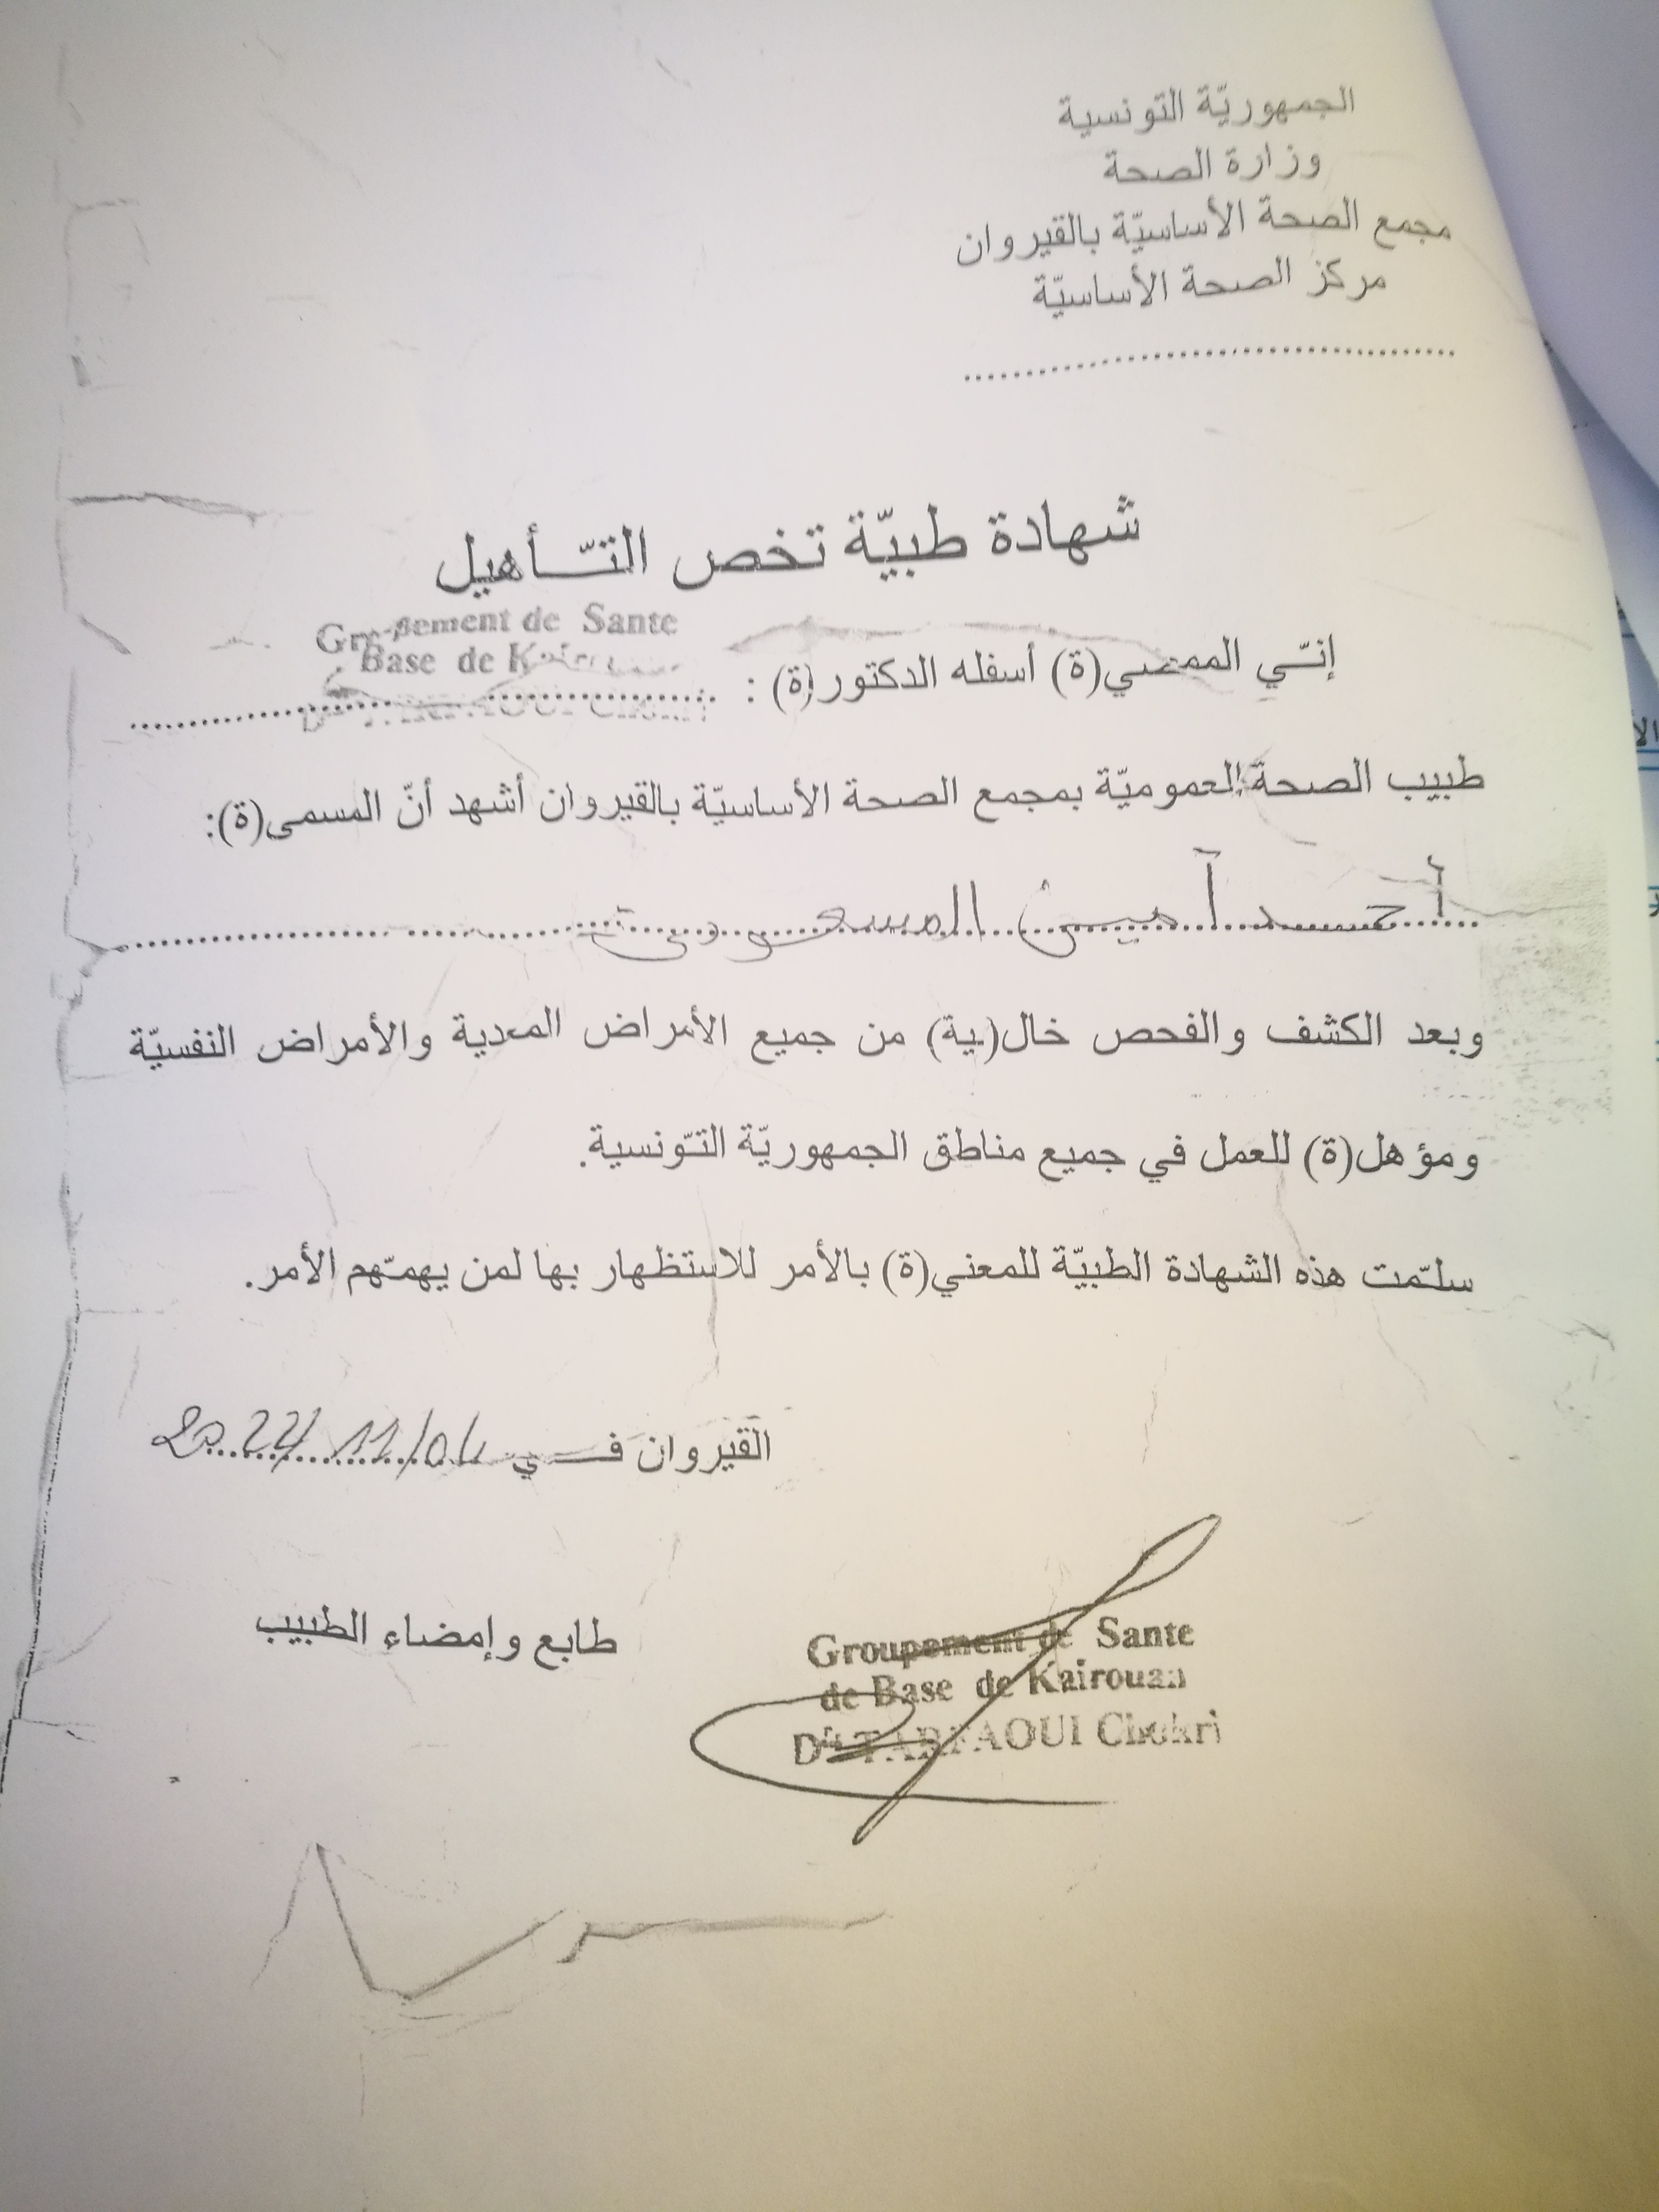 الجمهوريّة التونسية
وزارة الصحة
مجمع الصحة الأساسيّة بالقيروان
مركز الصحة الأساسيّة
شهادة طبيّة تخص التّأهيل
Groupement de Sante
Base de Kairouan
إنّي الممضي(ة) أسفله الدكتور(ة) :
Dr TARFAOUI Chokri
طبيب الصحة العموميّة بمجمع الصحة الأساسيّة بالقيروان أشهد أنّ المسمى(ة):
أحمد أمين المسعودي
وبعد الكشف والفحص خال(ية) من جميع الأمراض المعدية والأمراض النفسيّة
ومؤهل(ة) للعمل في جميع مناطق الجمهوريّة التّونسية.
سلّمت هذه الشهادة الطبيّة للمعني(ة) بالأمر للاستظهار بها لمن يهمّهم الأمر.
القيروان في
طابع وإمضاء الطبيب
Groupement de Sante
de Base de Kairouan
Dr TARFAOUI Chokri